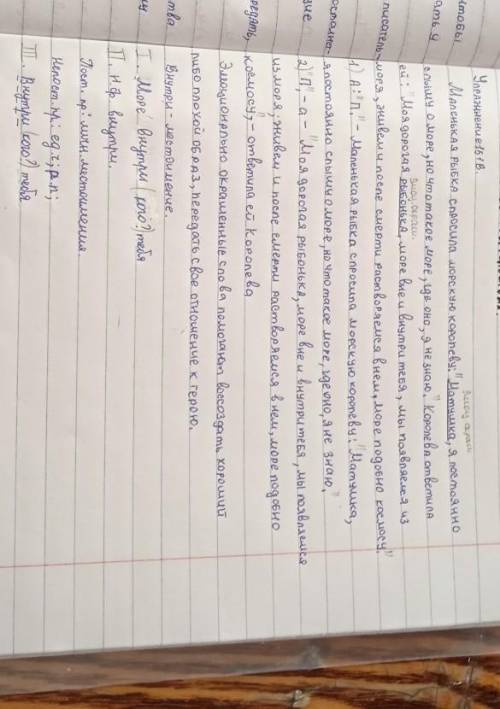 Упражнение 151В.
Маленькая рыбка спросила морскую королеву: "Матушка, я постоянно
эмоц окраш.
слышу о море, но что такое море, где оно, я не знаю." Королева ответила
ей: "Моя дорогая рыбонька, море вне и внутри тебя, мы появляемся из
эмоц окраш.
моря, живем и после смерти растворяемся в нем, море подобно космосу."
1) А: "П" - Маленькая рыбка спросила морскую королеву: "Матушка,
я постоянно слышу о море, но что такое море, где оно, я не знаю."
2) "П", - а - "Моя дорогая рыбонька, море вне и внутри тебя, мы появляемся
из моря, живем и после смерти растворяемся в нем, море подобно
космосу", - ответила ей Королева
Эмоционально окрашенные слова помогают воссоздать хороший
либо плохой образ, передать свое отношение к герою.
Внутри - местоимение
I. Море внутри (кого?) тебя
II. Н.ф внутри.
Пост. пр: личн. местоимения.
Непост. пр: ед.ч; р.п;
III. Внутри (кого?) тебя
чтобы
ать у
писатель
редать,
ства